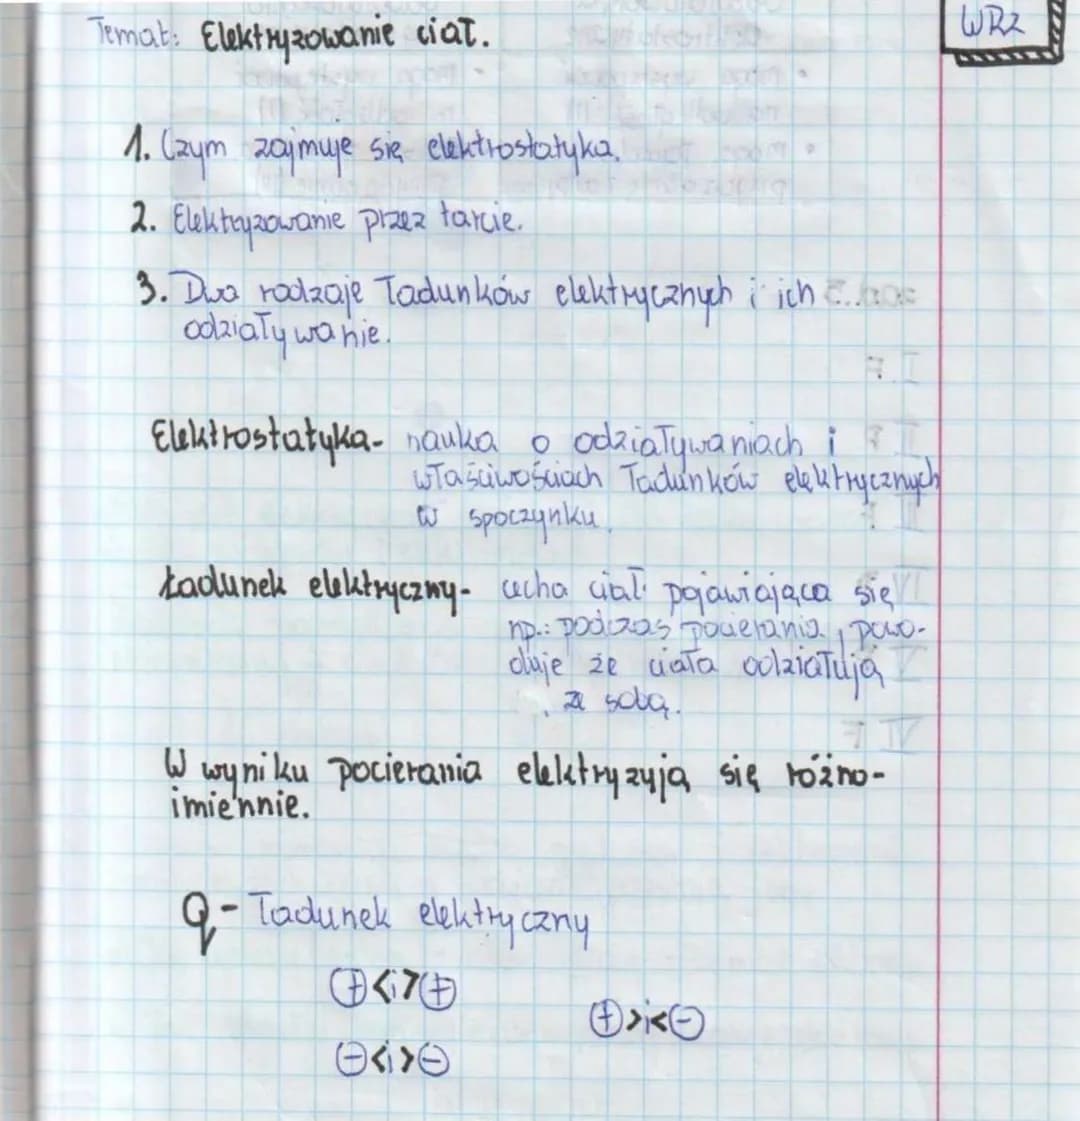 WRZ
Temat: Elektryzowanie ciał.
1. Czym zajmuje się elektrostatyka.
2. Elektryzowanie przez tarcie.
3. Dwa rodzaje ładunków elektrycznych i ich
odziaływanie.
Elektrostatyka- nauka o odziaływaniach i
właściwościach ładunków elektrycznych
w spoczynku.
Ładunek elektryczny- cecha ciał pojawiająca się
np.: podczas pocierania, powo-
duje że ciała odziałują
ze sobą.
W wyniku pocierania elektryzują się różno-
imiennie.
q - ładunek elektryczny
⊕<i>⊕
⊕>i<⊖
⊖<i>⊖